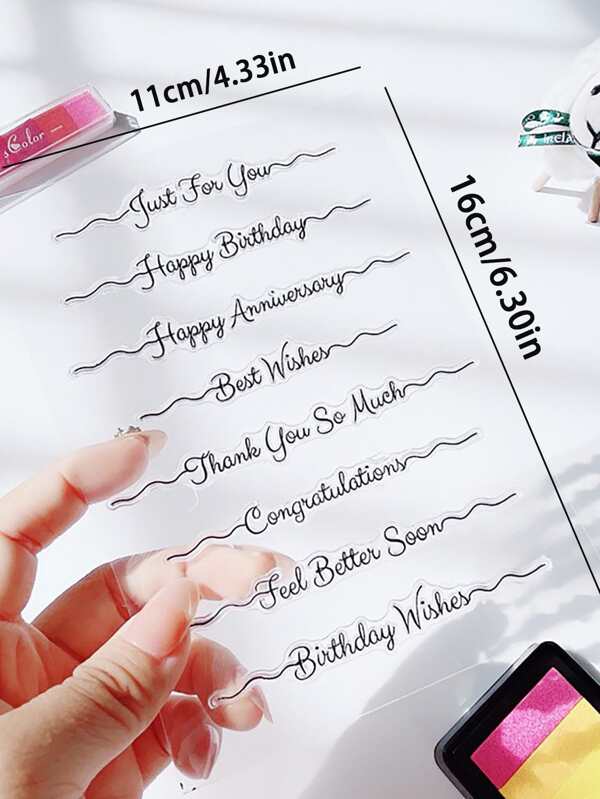 11cm/4.33in
Color
16cm/6.30in
Just For You
Happy Birthday
Happy Anniversary
Best Wishes
Thank You So Much
Congratulations
Feel Better Soon
Birthday Wishes